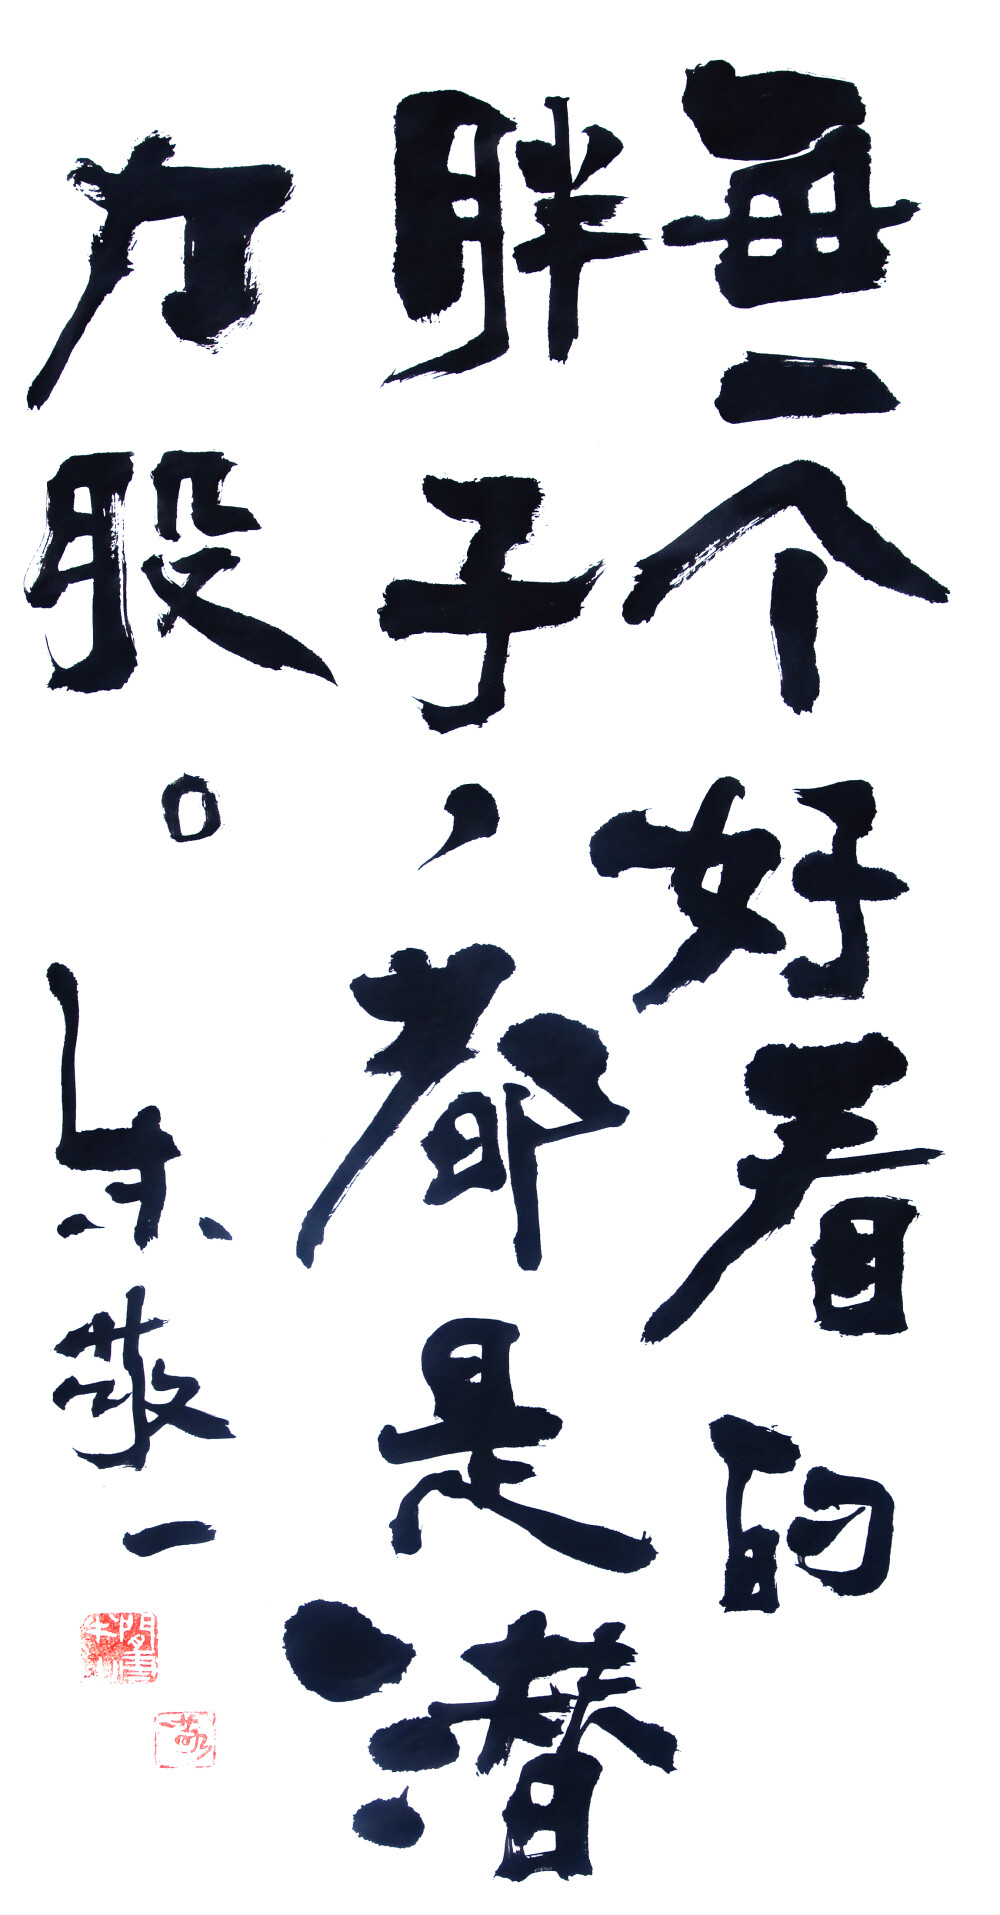 每一个好看的
胖子，都是潜
力股。朱敬一